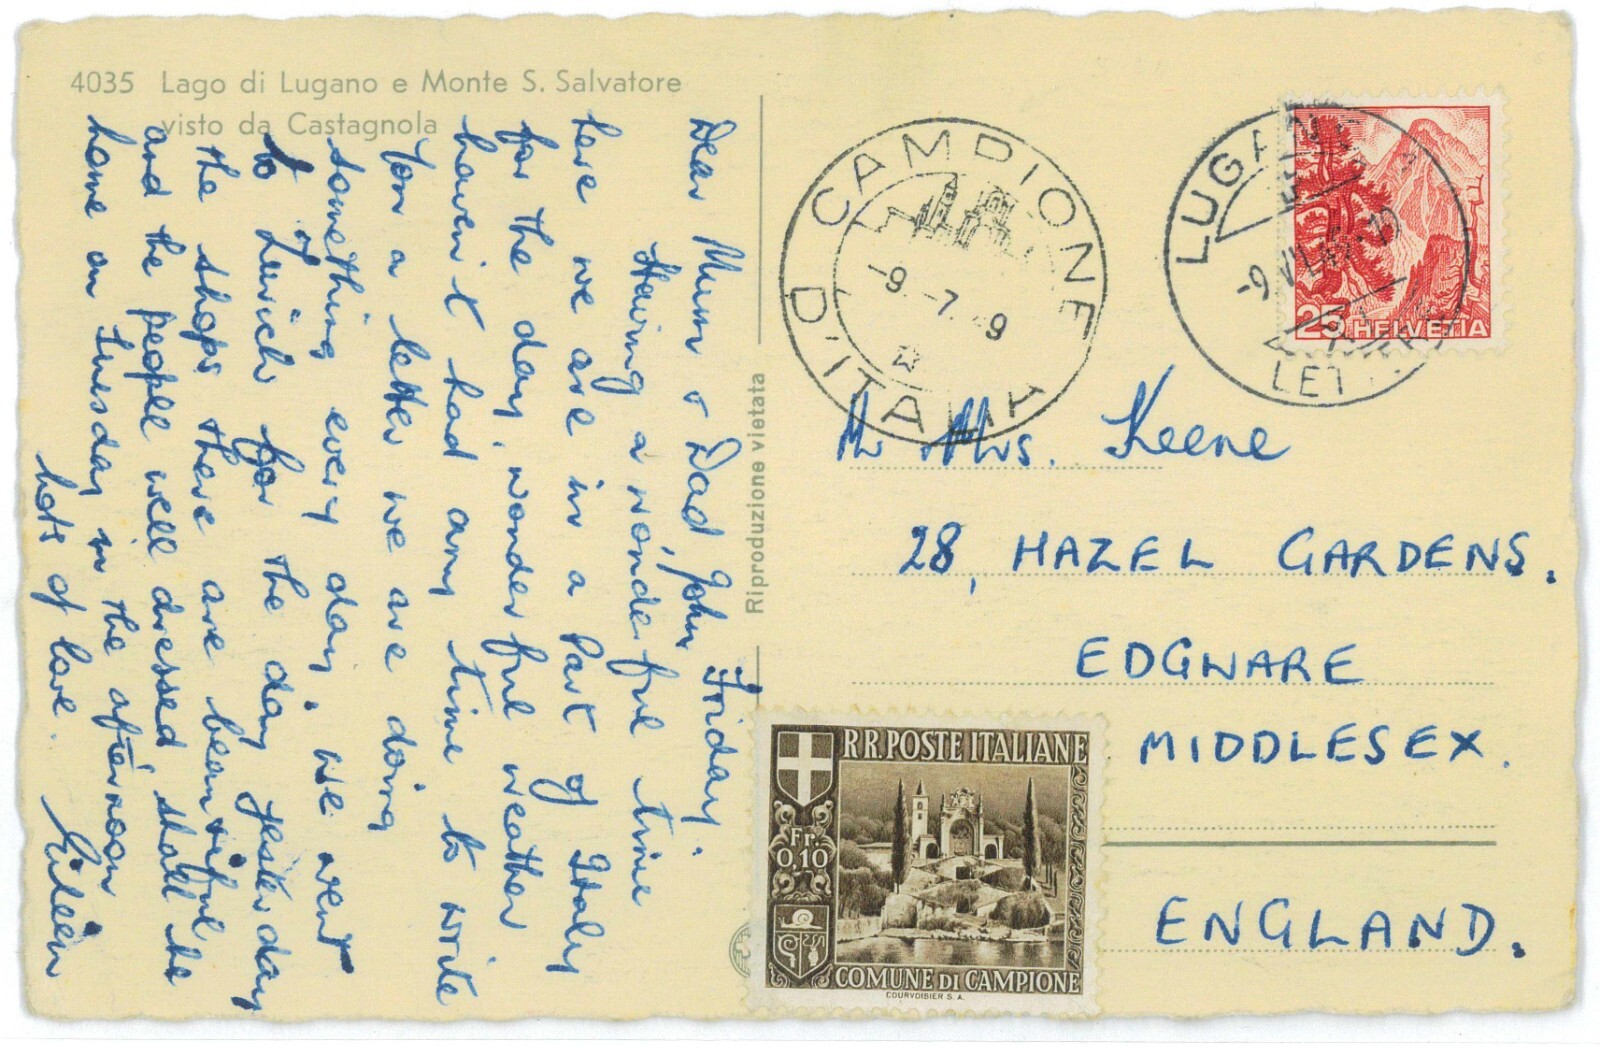 4035 Lago di Lugano e Monte S. Salvatore
visto da Castagnola
Friday.
Dear Mum & Dad, John
Having a wonderful time
here we are in a Part of Italy
for the day, wonderful weather
haven't had any time to write
you a letter we are doing
something every day, we went
to Zurich for the day yesterday
the shops there are beautiful
and the people well dressed, shall be
home on Tuesday in the afternoon
lots of love. Eileen
Riproduzione vietata
CAMPIONE D'ITALIA
-9.-7. 9
LUGANO
-9.VII.
LET
25 HELVETIA
M Mrs. Keene
28, HAZEL GARDENS.
EDGWARE
MIDDLESEX.
ENGLAND.
R R POSTE ITALIANE
Fr.
0,10
COMUNE DI CAMPIONE
COURVOISIER S. A.